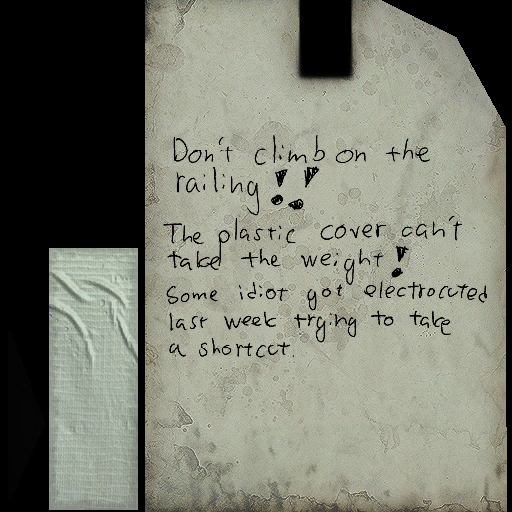 Don't climb on the
railing!!
The plastic cover can't
take the weight!
Some idiot got electrocuted
last week trying to take
a shortcut.